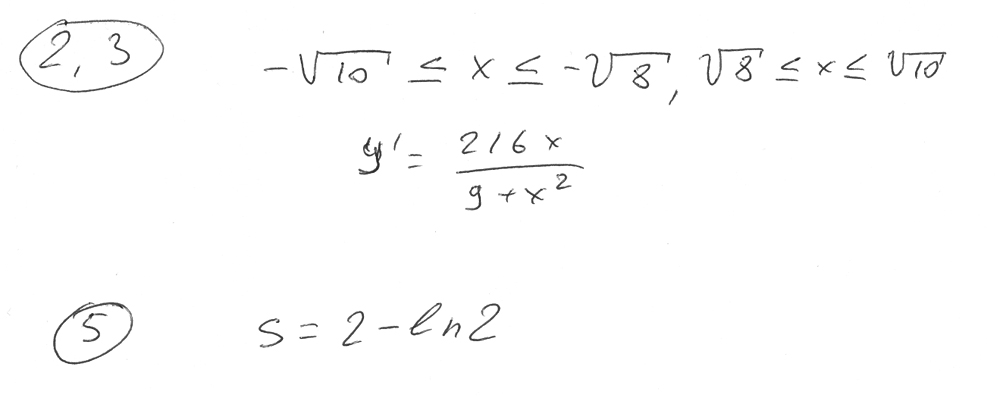 2,3 -√10 ≤ x ≤ -√8, √8 ≤ x ≤ √10
y' = 216x / (9 + x²)
5 S = 2 - ln2